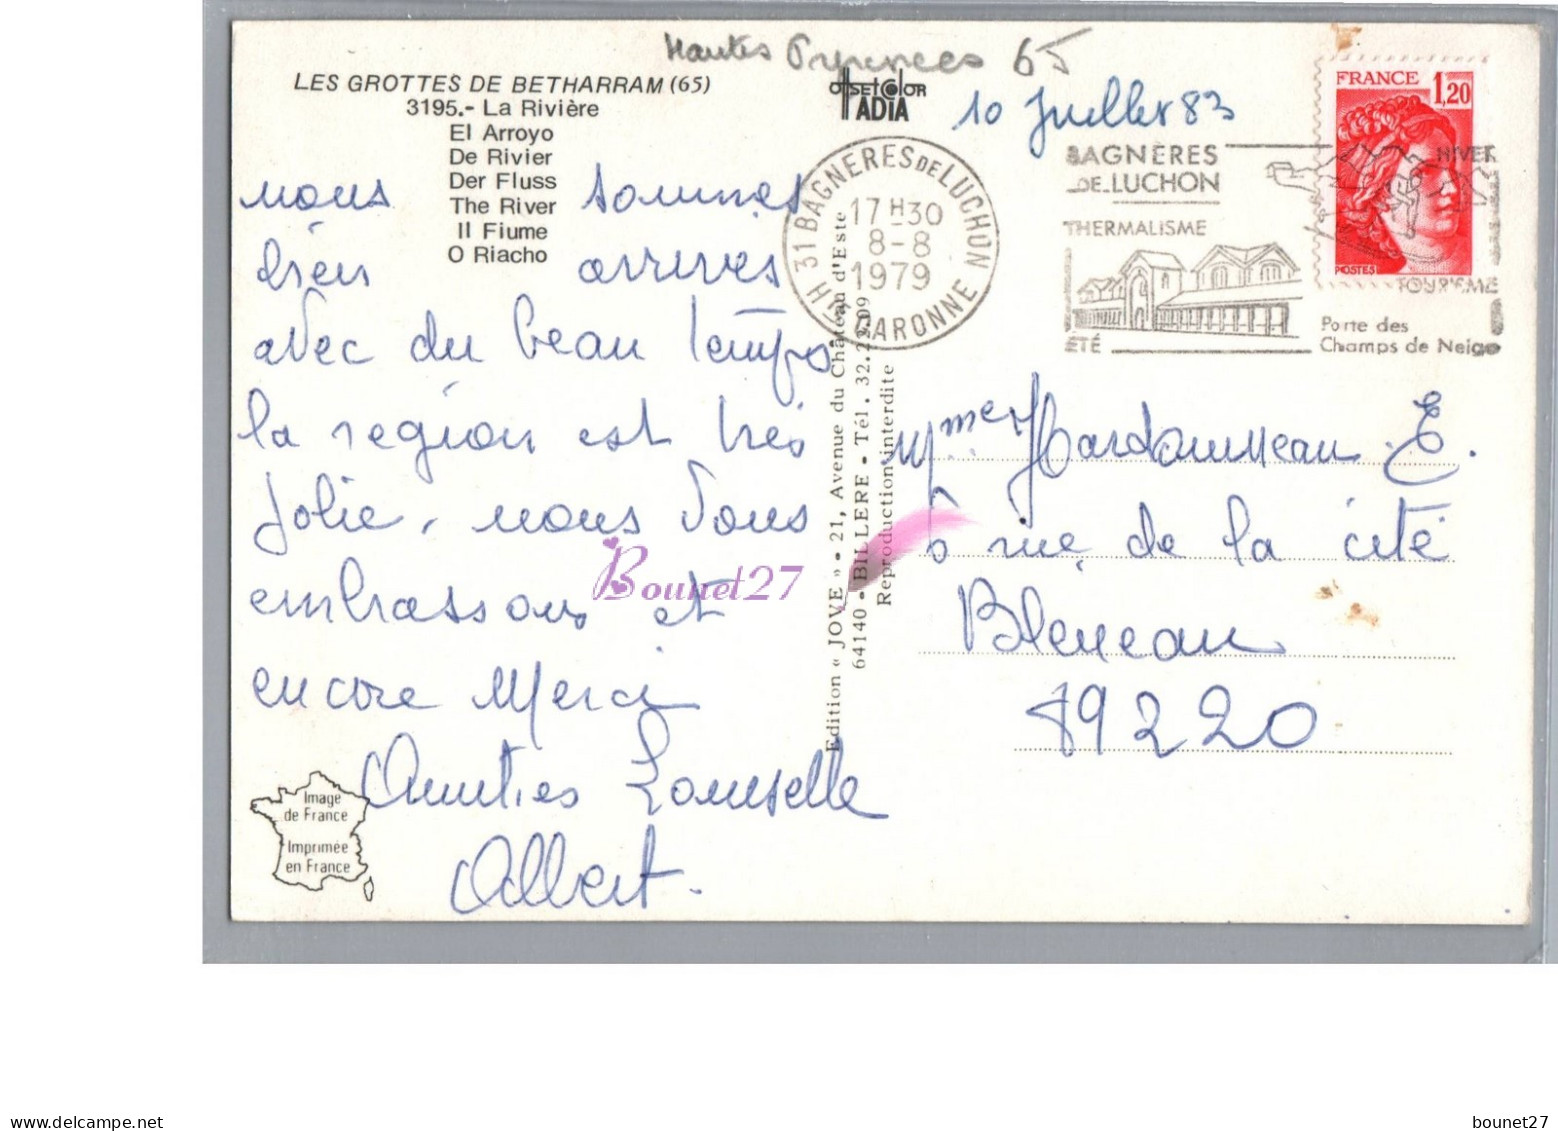 Hautes Pyrenees 65
LES GROTTES DE BETHARRAM (65)
3195.- La Rivière
El Arroyo
De Rivier
Der Fluss
The River
Il Fiume
O Riacho
offset color
IADIA
10 Juillet 83
31 BAGNERES DE LUCHON
17 H 30
8-8
1979
Hte GARONNE
BAGNÈRES
DE LUCHON
THERMALISME
ÉTÉ
HIVER
TOURISME
Porte des
Champs de Neige
FRANCE
1,20
POSTES
nous sommes
bien arrivés
avec du beau temps
la région est très
jolie, nous vous
embrassons et
encore Merci
Amitiés Louisette
Albert.
Edition « JOVE » - 21, Avenue du Château d'Este
64140 - BILLERE - Tél. 32.22.09
Reproduction interdite
Mme E.
6 rue de la cité
Bleneau
89220
Image
de France
Imprimée
en France
Bounet27
www.delcampe.net
bounet27